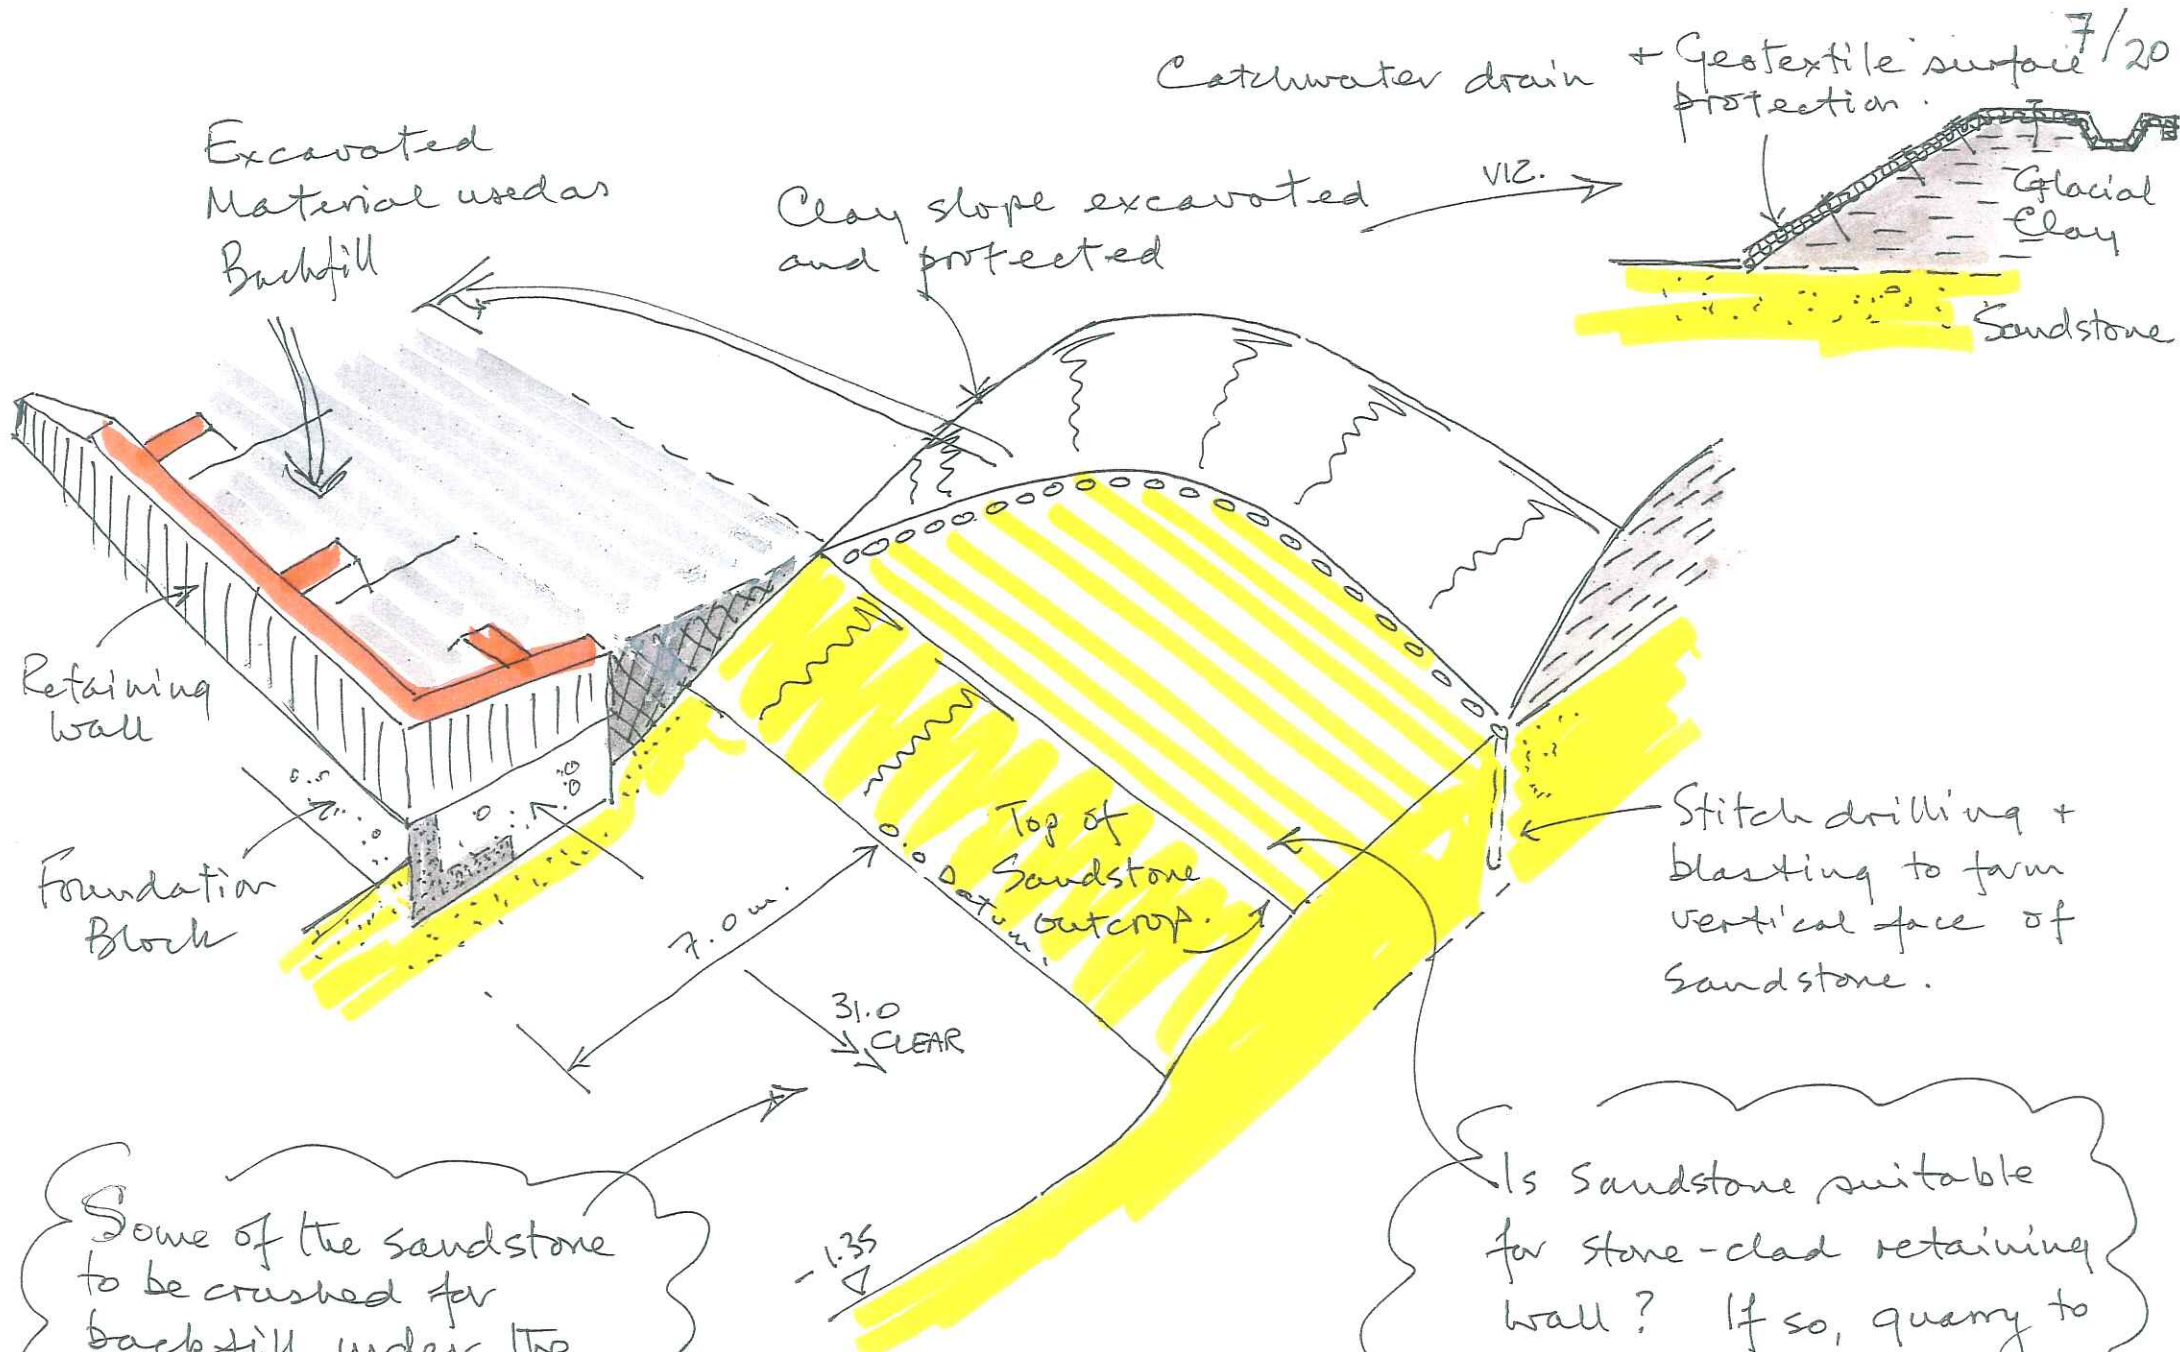 7/20
Catchwater drain + Geotextile surface
protection.
Excavated
Material used as
Backfill
Clay slope excavated
and protected
VIZ.
Glacial
Clay
Sandstone
Retaining
wall
Foundation
Block
7.0 m.
31.0
CLEAR
Datum
Top of
Sandstone
outcrop.
Stitch drilling +
blasting to form
vertical face of
sandstone.
-1.35
Some of the sandstone
to be crushed for
backfill under the
Is sandstone suitable
for stone-clad retaining
wall? If so, quarry to